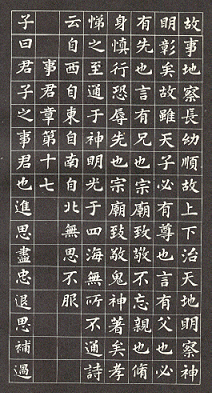 故事地察長幼順故上下治天地明察神
明彰矣故雖天子必有尊也言有父也必
有先也言有兄也宗廟致敬不忘親也脩
身慎行恐辱先也宗廟致敬鬼神著矣孝
悌之至通于神明光于四海無所不通詩
云自西自東自南自北無思不服
事君章第十七
子曰君子之事君也進思盡忠退思補過